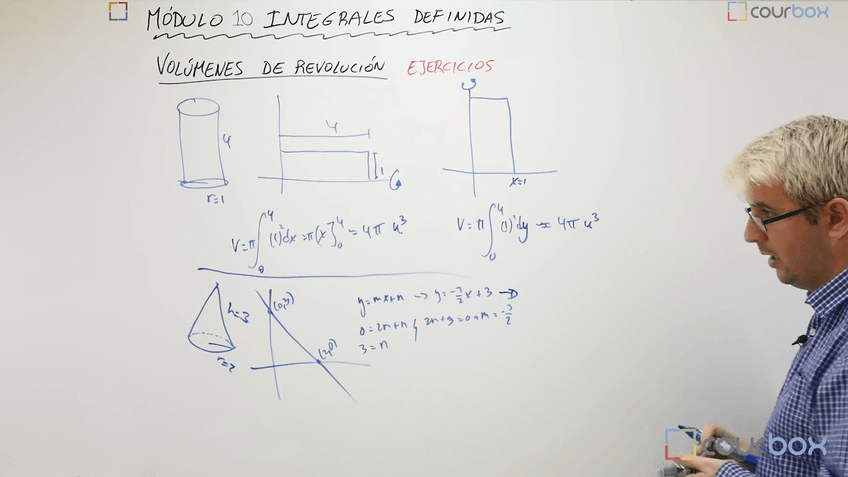 MÓDULO 10 INTEGRALES DEFINIDAS
courbox
VOLÚMENES DE REVOLUCIÓN EJERCICIOS
4
r=1
4
1
x=1
V=π∫₀⁴(1)²dx=π[x]₀⁴=4π u³
V=π∫₀⁴(1)²dy=4π u³
h=3
r=2
(0,3)
(2,0)
y=mx+n → y=-3/2x+3 →
0=2m+n
3=n
2m+3=0 m=-3/2
courbox